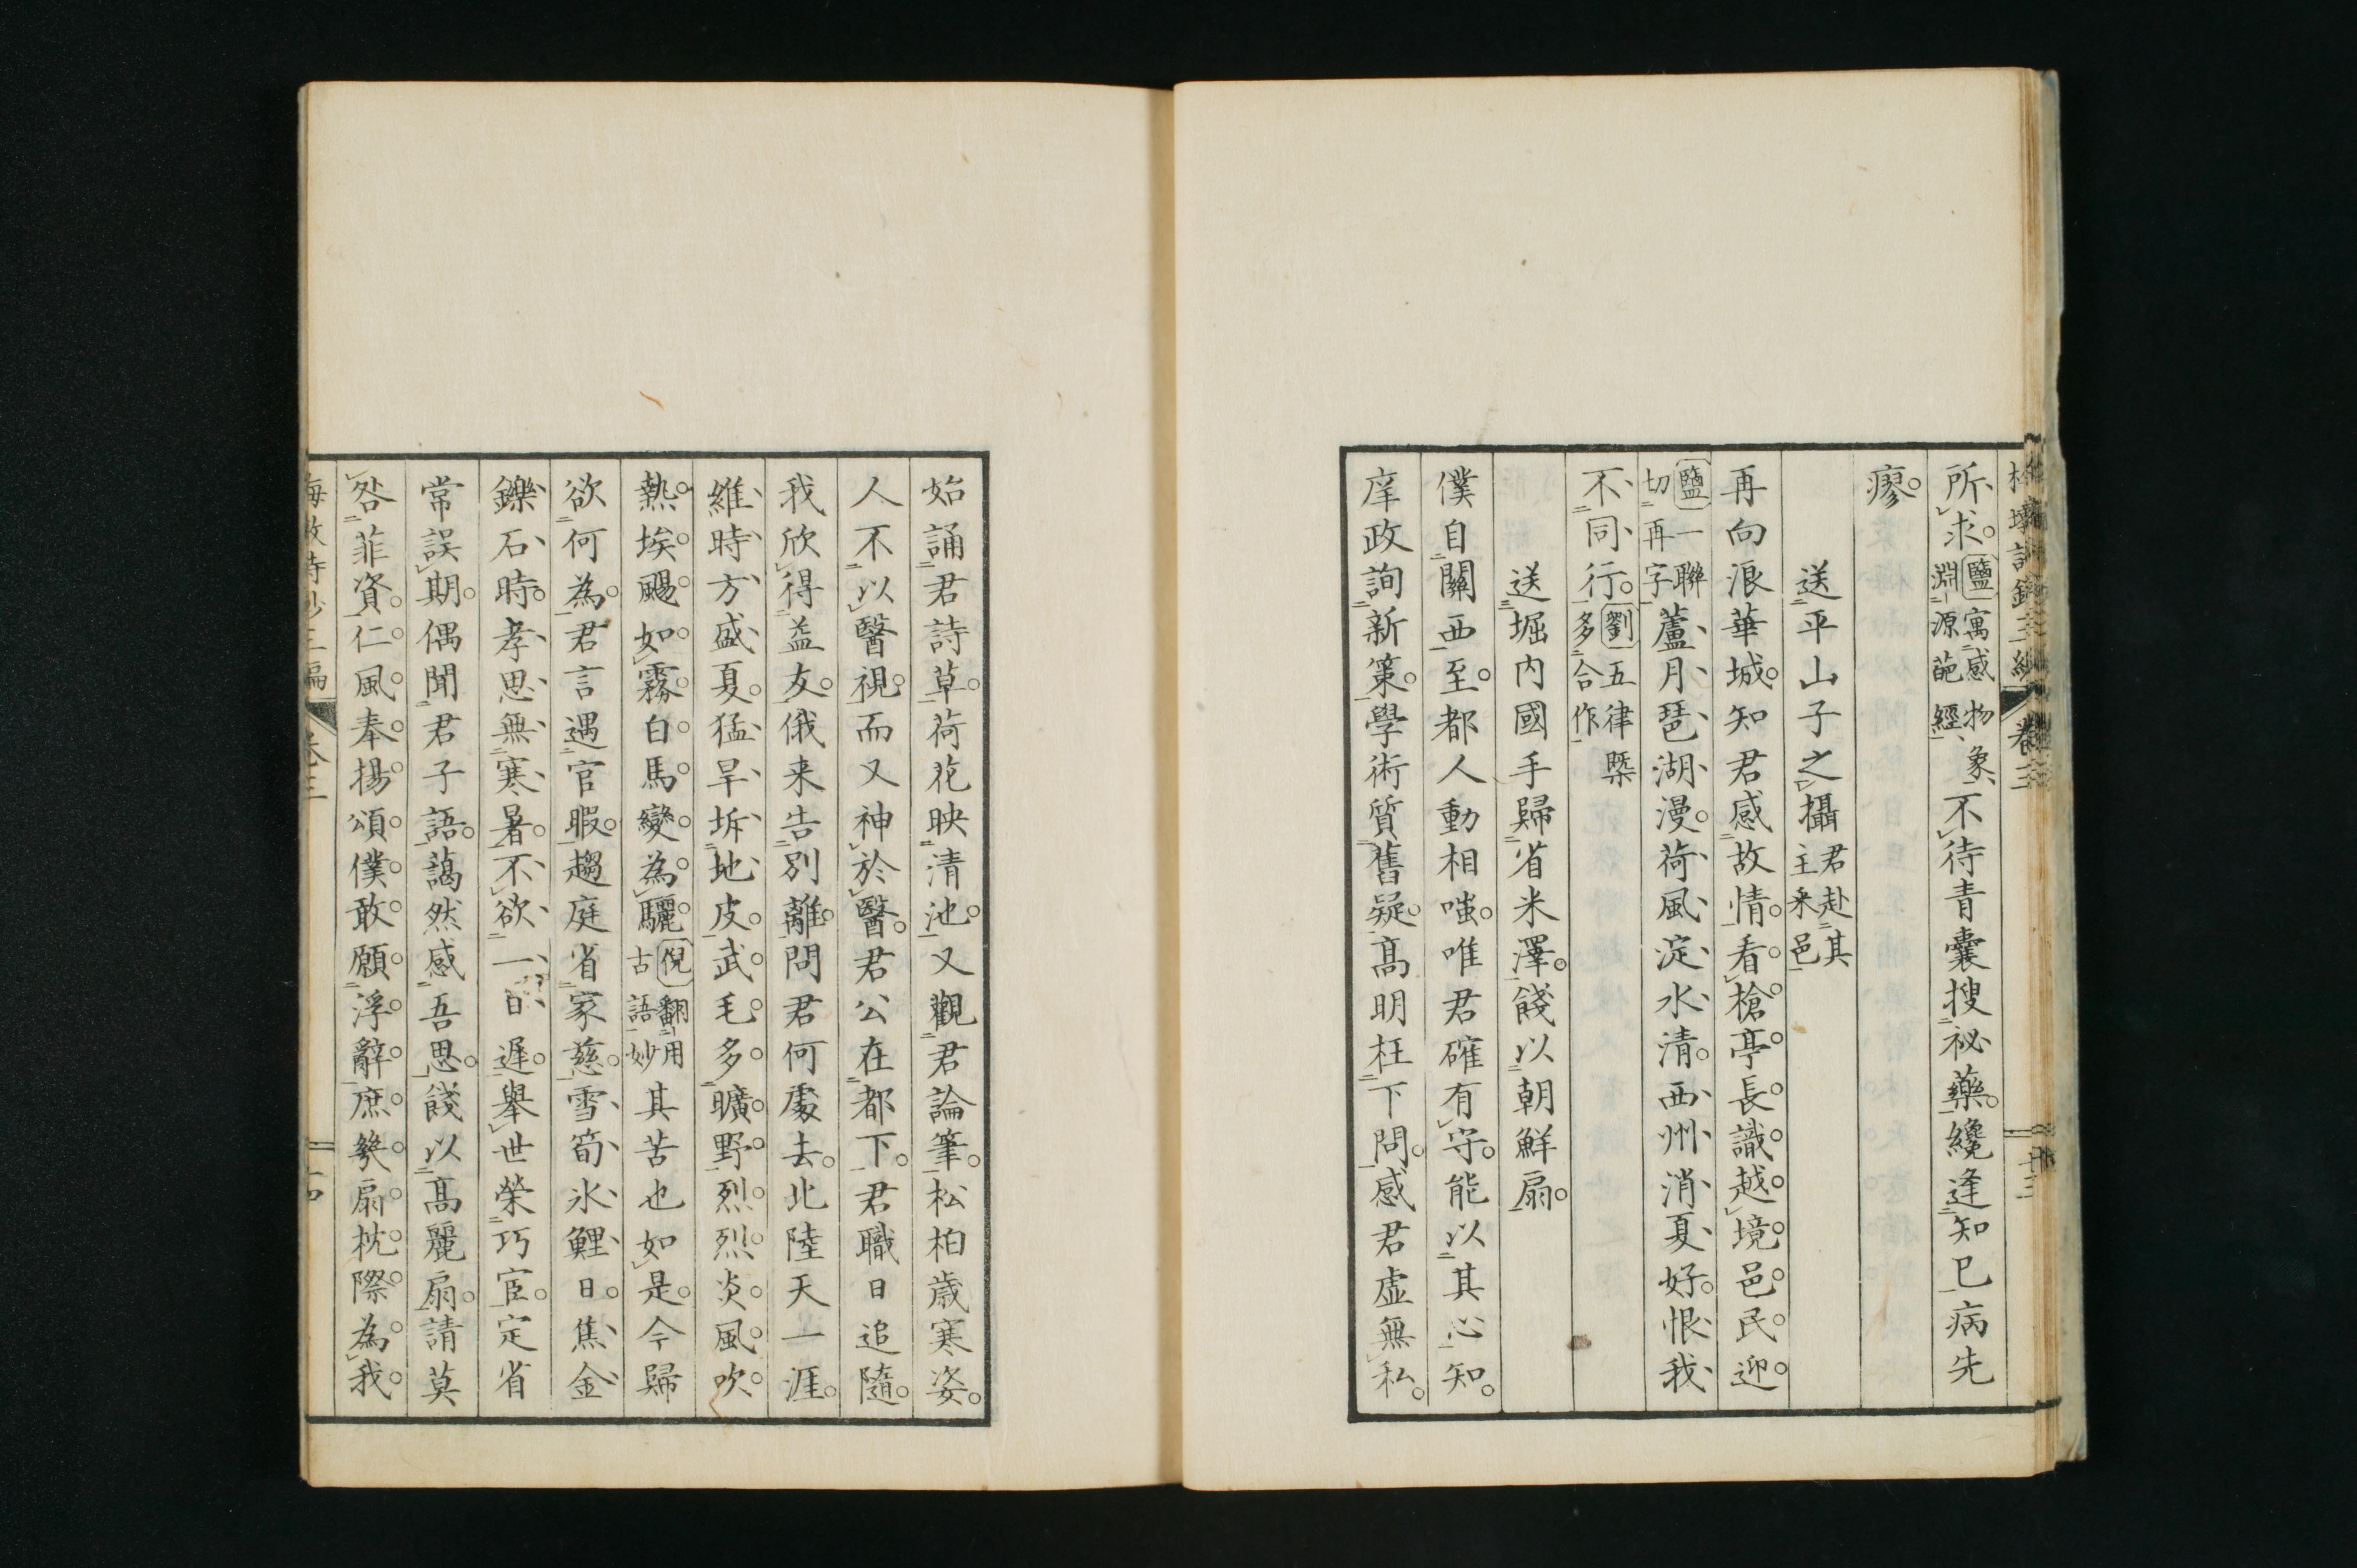 所求。鹽寓感物象、淵源葩經、不待青囊搜祕藥。纔逢知己病先
瘳。
送平山子之攝君赴其主采邑
再向浪華城。知君感故情。看槍亭長識越境邑民迎。
鹽一聯切再字蘆月琶湖漫。荷風淀水清。西州消夏好。恨我
不同行。劉五律槩多合作
送堀內國手歸省米澤。餞以朝鮮扇。
僕自關西至。都人動相嗤。唯君確有守。能以其心知。
庠政詢新策。學術質舊疑。高明枉下問。感君虛無私。
始誦君詩草。荷花映清池。又觀君論筆。松柏歲寒姿。
人不以醫視。而又神於醫。君公在都下。君職日追隨。
我欣得益友。俄来告別離。問君何處去。北陸天一涯。
維時方盛夏。猛旱坼地皮。武毛多曠野。烈烈炎風吹。
熱埃颺如霧。白馬變為驪倪翻用古語妙其苦也如是。今歸
欲何為。君言遇官暇。趨庭省家慈。雪筍氷鯉日。焦金
鑠石時。孝思無寒暑。不欲一日遲。舉世榮巧宦。定省
常誤期。偶聞君子語。藹然感吾思。餞以高麗扇。請莫
咎菲資。仁風奉揚頌。僕敢願浮辭。庶幾扇枕際。為我
卷三